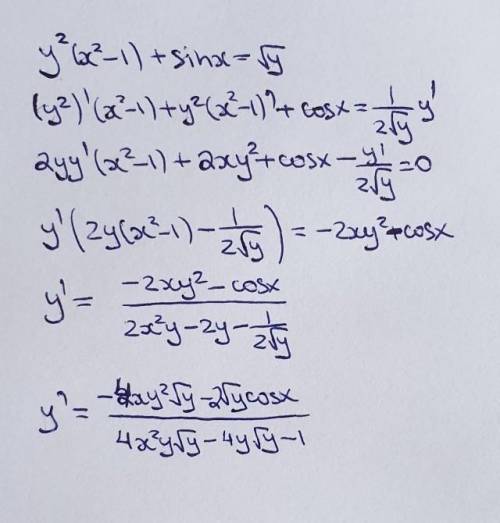 y²(x²-1) + sinx = √y
(y²)'(x²-1) + y²(x²-1)' + cosx = 1/(2√y) y'
2yy'(x²-1) + 2xy² + cosx - y'/(2√y) = 0
y'(2y(x²-1) - 1/(2√y)) = -2xy² - cosx
y' = (-2xy² - cosx)/(2x²y - 2y - 1/(2√y))
y' = (-4xy²√y - 2√y cosx)/(4x²y√y - 4y√y - 1)